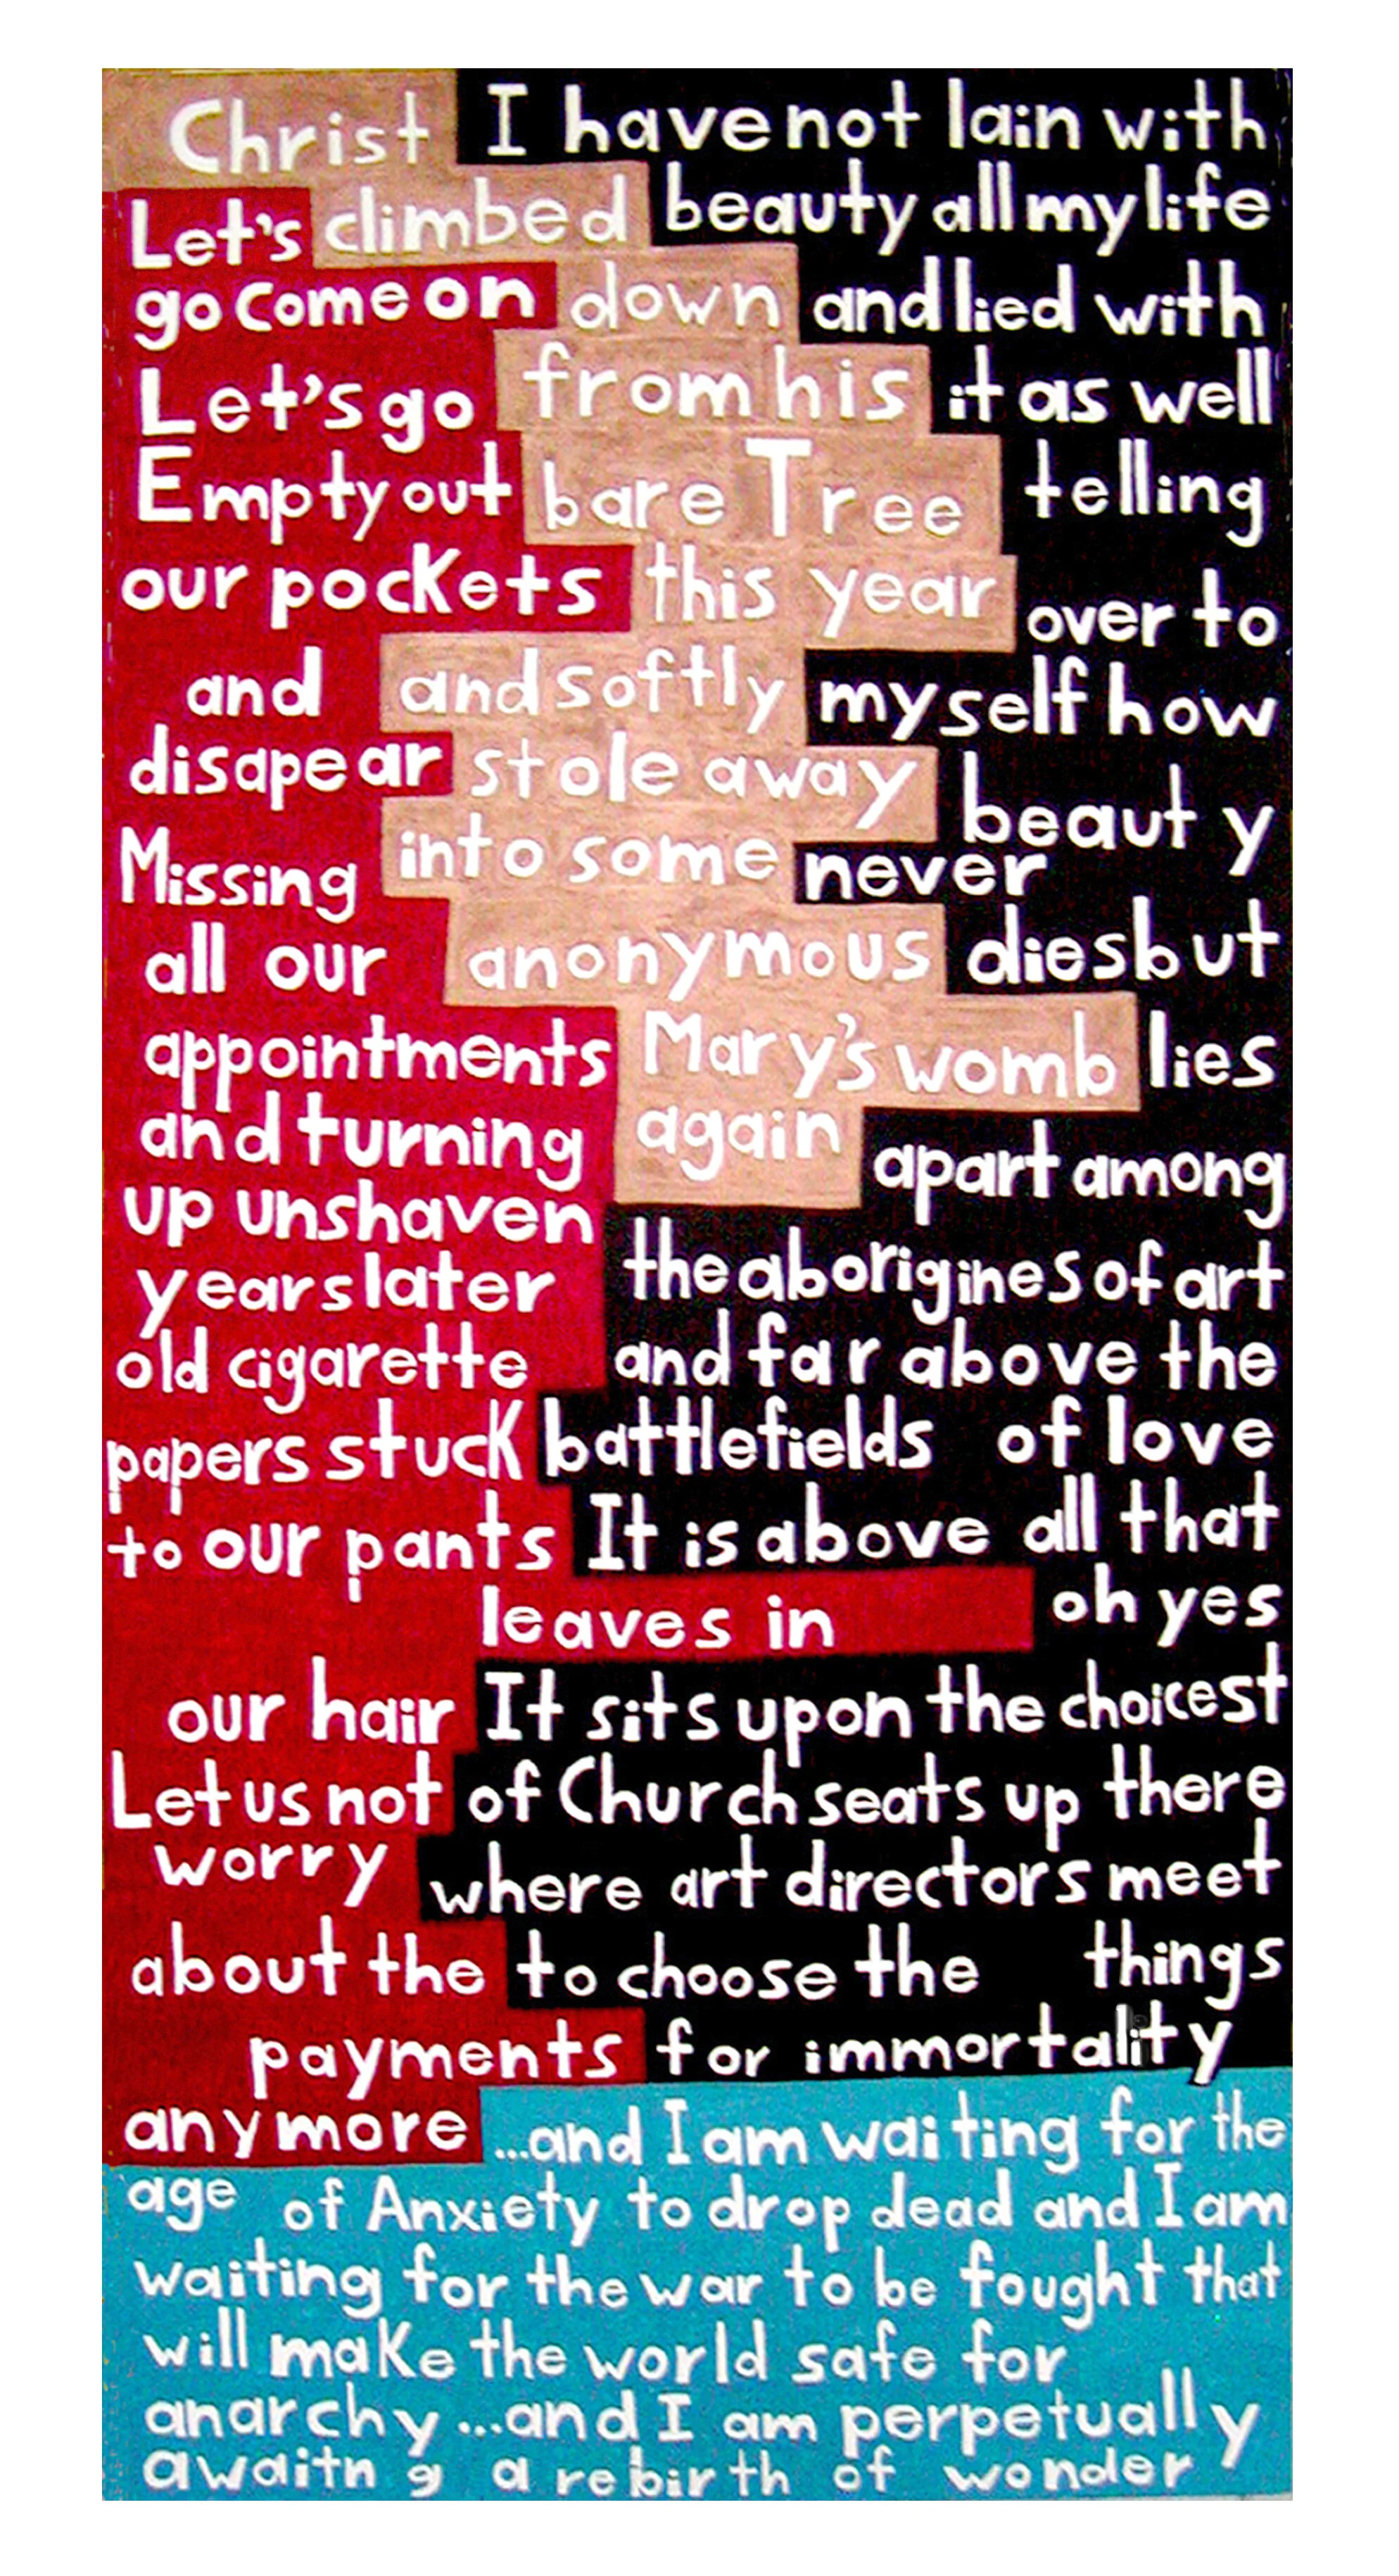 Christ
climbed
down
from his
bare Tree
this year
and softly
stole away
into some
anonymous
Mary's womb
again
Let's
go come on
Let's go
Empty out
our pockets
and
disapear
Missing
all our
appointments
and turning
up unshaven
years later
old cigarette
papers stuck
to our pants
leaves in
our hair
Let us not
worry
about the
payments
anymore
I have not lain with
beauty all my life
and lied with
it as well
telling
over to
myself how
beauty
never
dies but
lies
apart among
the aborigines of art
and far above the
battlefields of love
It is above all that
oh yes
It sits upon the choicest
of Church seats up there
where art directors meet
to choose the things
for immortality
...and I am waiting for the
age of Anxiety to drop dead and I am
waiting for the war to be fought that
will make the world safe for
anarchy...and I am perpetually
awaitng a rebirth of wonder